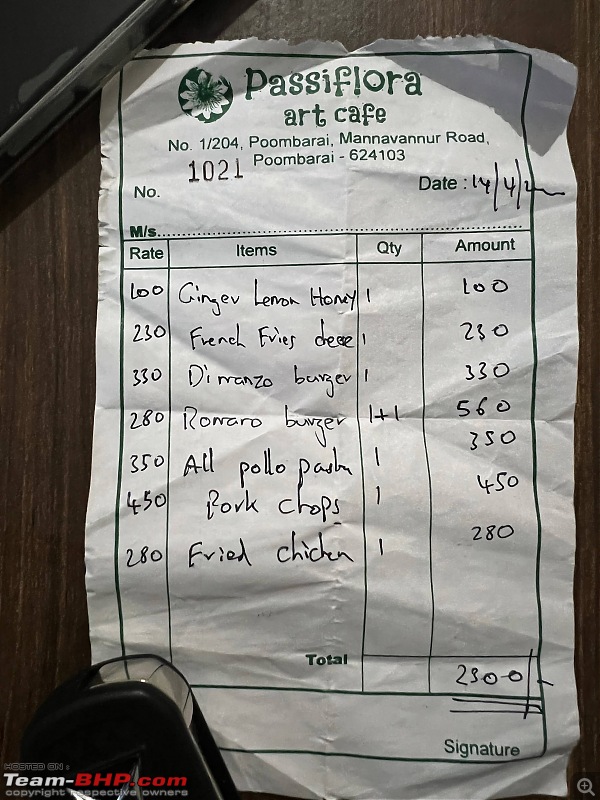 Passiflora
art cafe
No. 1/204, Poombarai, Mannavannur Road,
Poombarai - 624103
No. 1021
Date : 14/4/
M/s.
Rate Items Qty Amount
100 Ginger Lemon Honey 1 100
230 French Fries 1 230
330 Dimanzo burger 1 330
280 Romaro burger 1+1 560
350 All pollo pasta 1 350
450 Pork chops 1 450
280 Fried chicken 1 280
Total 2300/-
Signature
HOSTED ON :
Team-BHP.com
copyright respective owners